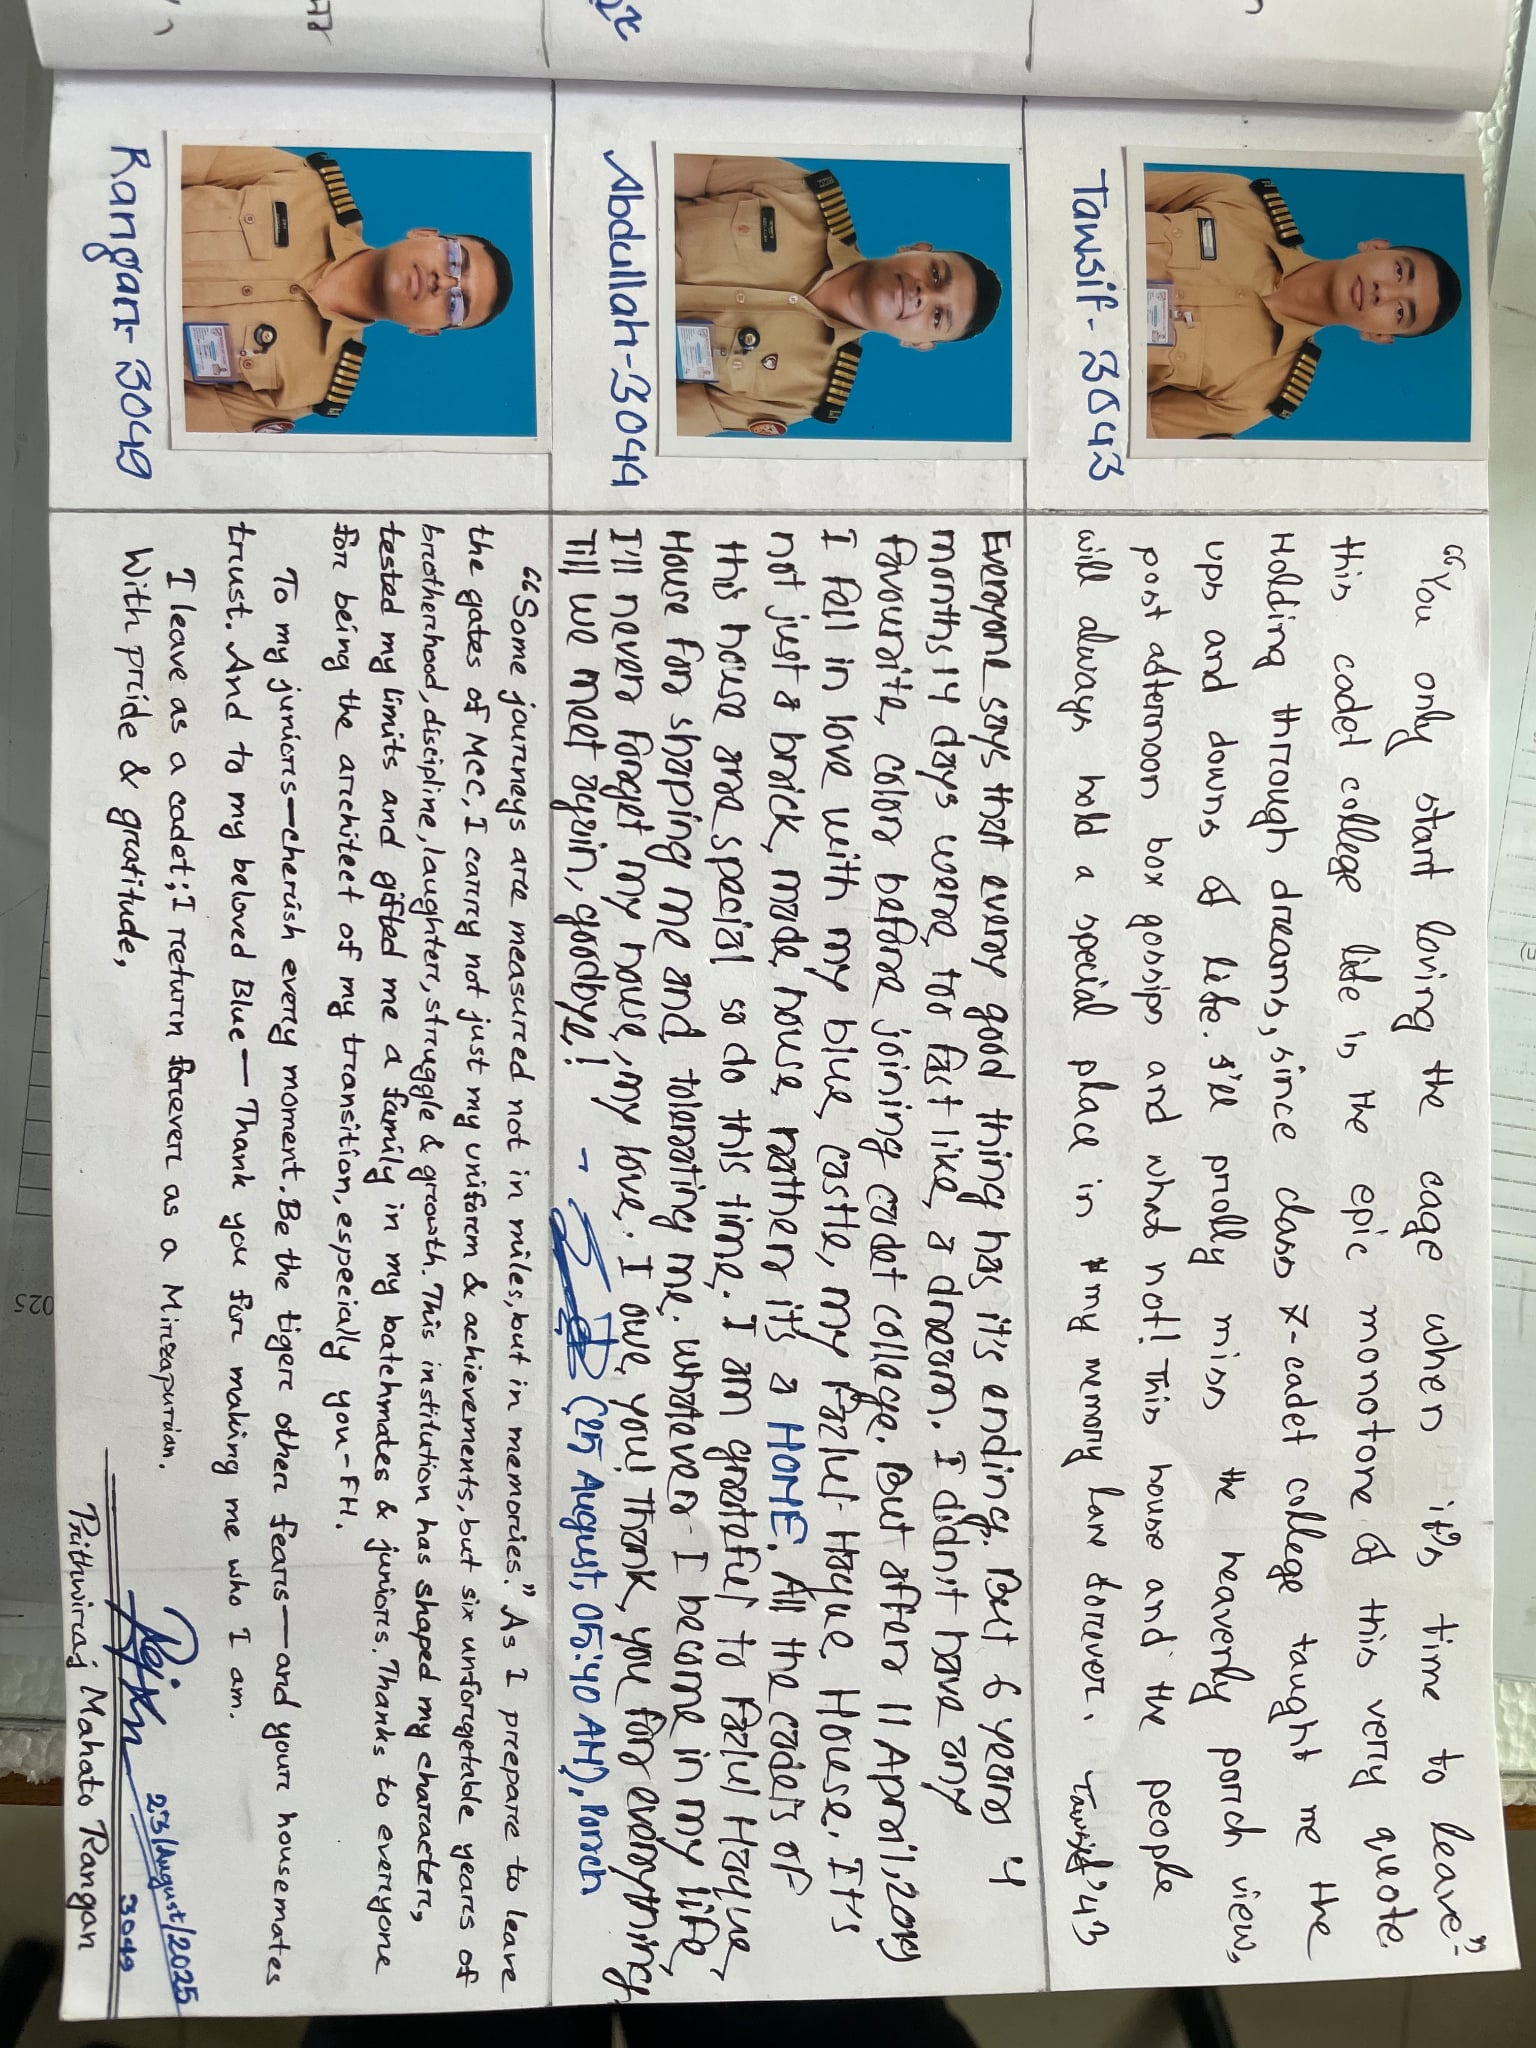 “You only start loving the cage when it's time to leave”-
this cadet college life is the epic monotone of this very quote.
Holding through dreams, since class 7-cadet college taught me the
ups and downs of life. I'll prolly miss the heavenly porch view,
post afternoon box gossips and what not! This house and the people
will always hold a special place in my memory lane forever. Tawsif '43
Tawsif- 3043
Everyone says that every good thing has it's ending. But 6 years 4
months 14 days were too fast like a dream. I didn't have any
favourite color before joining cadet college. But after 11 April, 2019
I fell in love with my blue castle, my Fazlul Haque House. It's
not just a brick made house rather it's a HOME. All the cadets of
this house are special so do this time. I am grateful to Fazlul Haque
House for shaping me and tolerating me. Whatever I become in my life,
I'll never forget my house, my love. I owe you! Thank you for everything
Till we meet again, goodbye! - (25 August, 05:40 AM), Porch
Abdullah-3044
“Some journeys are measured not in miles, but in memories.” As I prepare to leave
the gates of MCC, I carry not just my uniform & achievements, but six unforgetable years of
brotherhood, discipline, laughter, struggle & growth. This institution has shaped my character,
tested my limits and gifted me a family in my batchmates & juniors. Thanks to everyone
for being the architect of my transition, especially you-FH.
To my juniors—cherish every moment. Be the tiger other fears—and your housemates
trust. And to my beloved Blue— Thank you for making me who I am.
I leave as a cadet; I return forever as a Mirzapurian.
With pride & gratitude,
23/August/2025
3049
Prithwiraj Mahato Rangan
Rangan- 3049